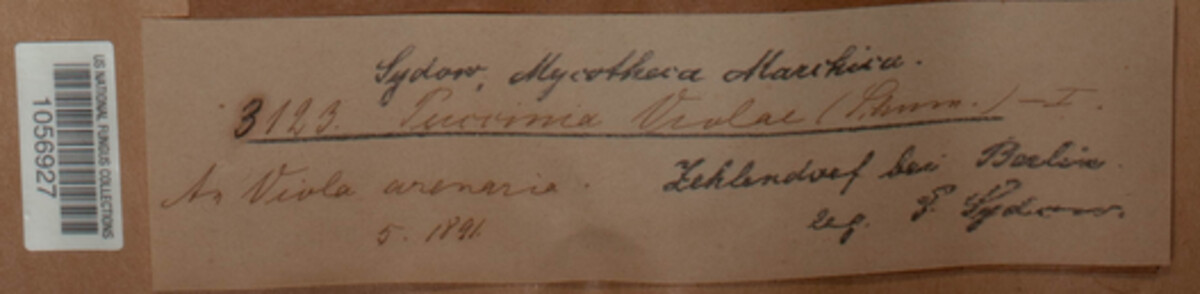 US NATIONAL FUNGUS COLLECTIONS
1056927
Sydow, Mycotheca Marchica.
3123. Puccinia Violae (Schum.) – I.
An Viola arenaria.
5. 1891.
Zehlendorf bei Berlin
leg. P. Sydow.